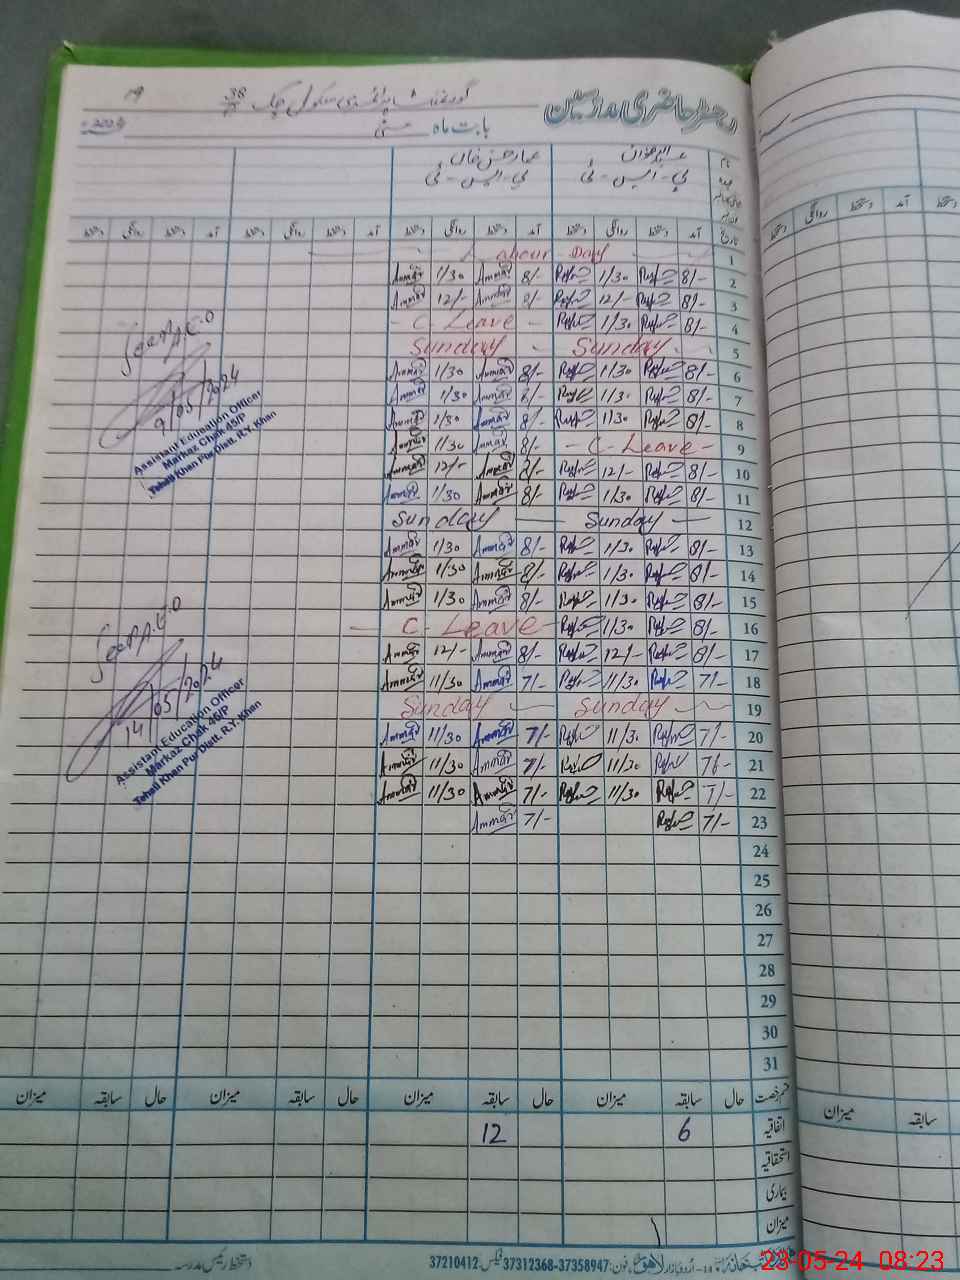 رجسٹر حاضری مدرسین
گورنمنٹ پرائمری سکول چک 38
بابت ماہ مئی 2024ء
عبدالرحمٰن عمار حسن خان
پی - ایس - ٹی پی - ایس - ٹی
نام
عہدہ
تاریخ آمد دستخط روانگی دستخط آمد دستخط روانگی دستخط آمد دستخط روانگی دستخط آمد دستخط روانگی دستخط
1 Labour Day
2 8/- 1/30 8/- Ammar 1/30 Ammar
3 8/- 12/- 8/- Ammar 12/- Ammar
4 8/- 1/30 C-Leave
5 Sunday Sunday
6 8/- 1/30 8/- Ammar 1/30 Ammar
7 8/- 1/30 8/- Ammar 1/30 Ammar
8 8/- 1/30 8/- Ammar 1/30 Ammar
9 C-Leave 8/- Ammar 1/30 Ammar
10 8/- 12/- 8/- Ammar 12/- Ammar
11 8/- 1/30 8/- Ammar 1/30 Ammar
12 Sunday Sunday
13 8/- 1/30 8/- Ammar 1/30 Ammar
14 8/- 1/30 8/- Ammar 1/30 Ammar
15 8/- 1/30 8/- Ammar 1/30 Ammar
16 8/- 1/30 C-Leave
17 8/- 12/- 8/- Ammar 12/- Ammar
18 7/- 11/30 7/- Ammar 11/30 Ammar
19 Sunday Sunday
20 7/- 11/30 7/- Ammar 11/30 Ammar
21 7/- 11/30 7/- Ammar 11/30 Ammar
22 7/- 11/30 7/- Ammar 11/30 Ammar
23 7/- 7/- Ammar
24
25
26
27
28
29
30
31
Seen A.E.O
9/05/2024
Assistant Education Officer
Markaz Chak 45/P
Tehsil Khan Pur Distt. R.Y. Khan
Seen A.E.O
14/05/2024
Assistant Education Officer
Markaz Chak 45/P
Tehsil Khan Pur Distt. R.Y. Khan
قسم رخصت حال سابقہ میزان حال سابقہ میزان حال سابقہ میزان حال سابقہ میزان
اتفاقیہ 6 12
استحقاقیہ
بیماری
میزان
14- اردو بازار لاہور فون: 37358947-37312368 فیکس: 37210412
دستخط رئیس مدرسہ
آمد دستخط روانگی دستخط
سابقہ میزان
23-05-24 08:23